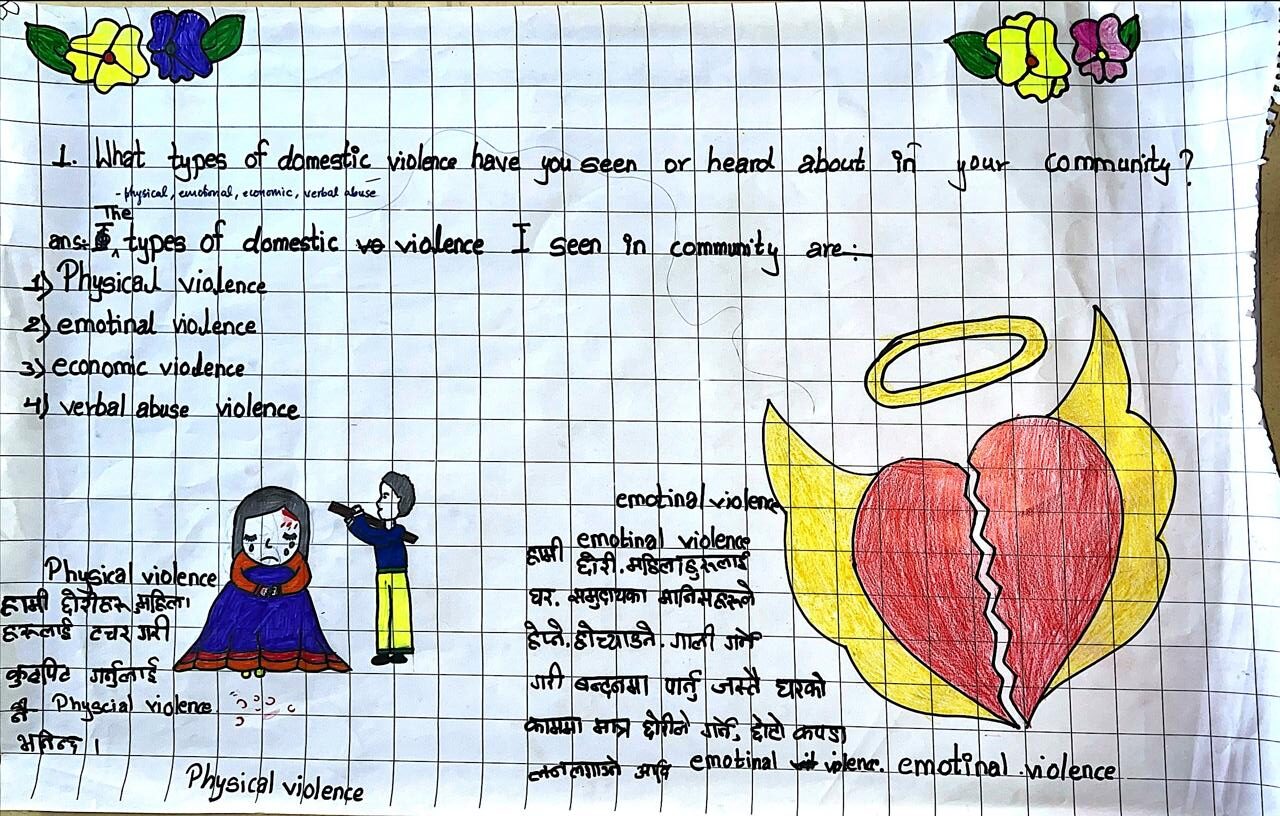 1. What types of domestic violence have you seen or heard about in your community?
- physical, emotional, economic, verbal abuse
The
ans: types of domestic violence I seen in community are:
1) Physical violence
2) emotinal violence
3) economic violence
4) verbal abuse violence
emotinal violence
emotinal violence
हामी छोरी. महिलाहरुलाई
घर. समुदायका मानिसहरुले
हेप्ने. होच्याउने. गाली गर्ने
गरी बन्दनमा पार्नु जस्तै घरको
काममा मात्र छोरीले गर्ने, छोटो कपडा
लगाउने आदि emotinal violence.
emotinal violence
Physical violence
हामी छोरीहरु महिला
हरुलाई टचर गरी
कुटपिट गर्नुलाई
Physcial violence
भनिन्छ ।
Physical violence